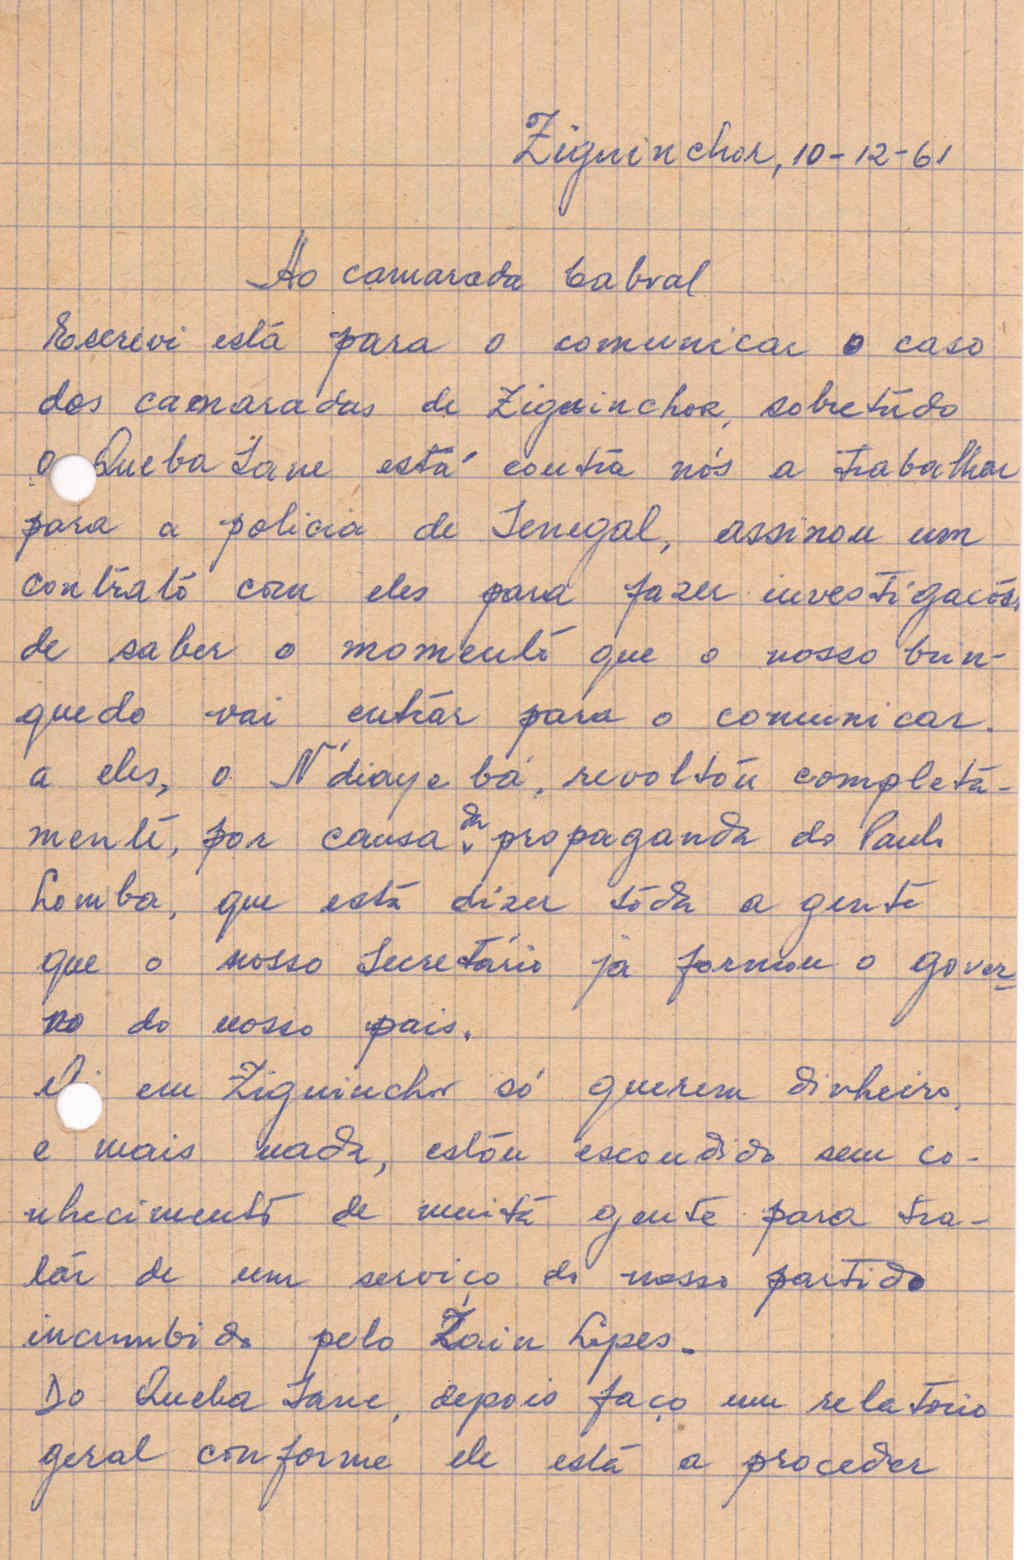 Ziguinchor, 10-12-61
Ao camarada Cabral
Escrevi está para o comunicar o caso
dos camaradas de Ziguinchor, sobretúdo
O Queba Sane está contra nós a trabalhar
para a policia de Senegal, assinou um
contrato com eles para fazer investigacões
de saber o momento que o nosso brin-
quedo vai entrar para o comunicar
a eles, o N'diaye bá, revoltou completa-
mente, por causa da propaganda do Paulo
Lomba, que está dizer tôda a gente
que o nosso Secretário já formou o gover-
no do nosso pais.
em Ziguinchor só querem dinheiro,
e mais nada, estou escondido sem co-
nhecimento de muita gente para tra-
tar de um serviço do nosso partido
incumbido pelo Zain Lopes.
Do Queba Sane, depois faço um relatorio
geral conforme ele está a proceder